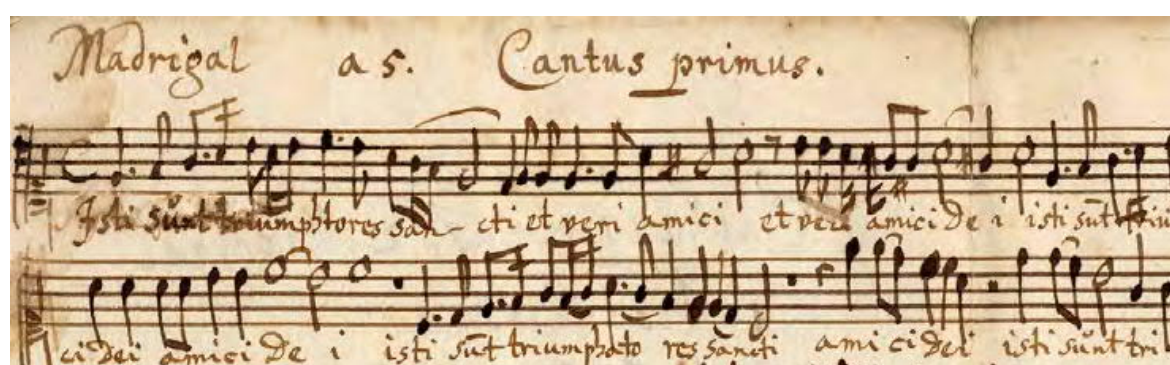 Madrigal a 5. Cantus primus.
Isti sūnt triumphtores san cti et veri amici et veri amici de i isti sūnt triu
ci dei amici de i isti sūt triumphato res sancti amici dei isti sūnt tri